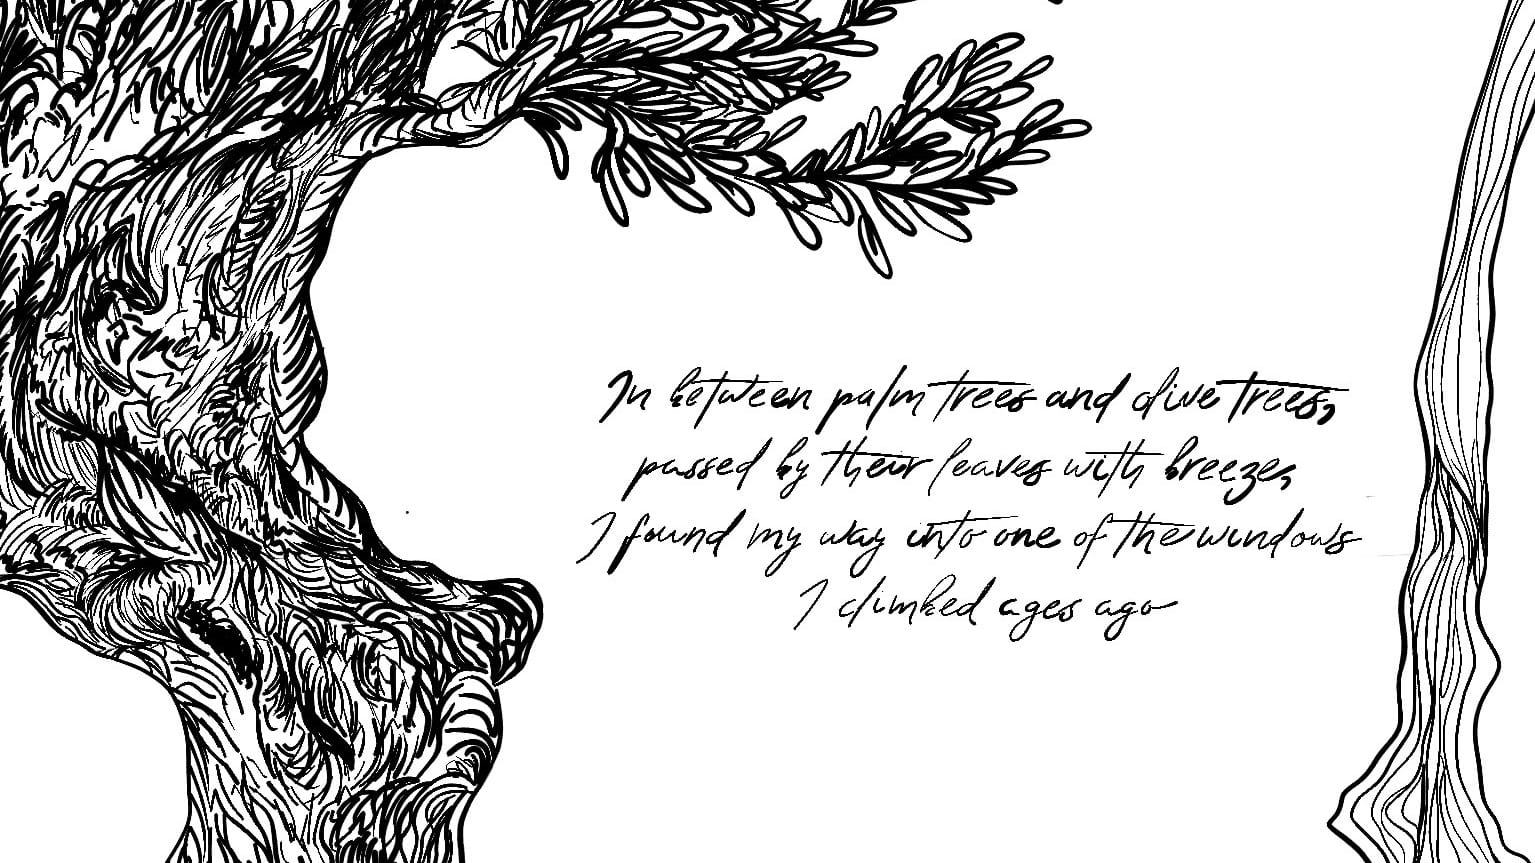 In between palm trees and olive trees,
passed by their leaves with breeze,
I found my way into one of the windows
I climbed ages ago